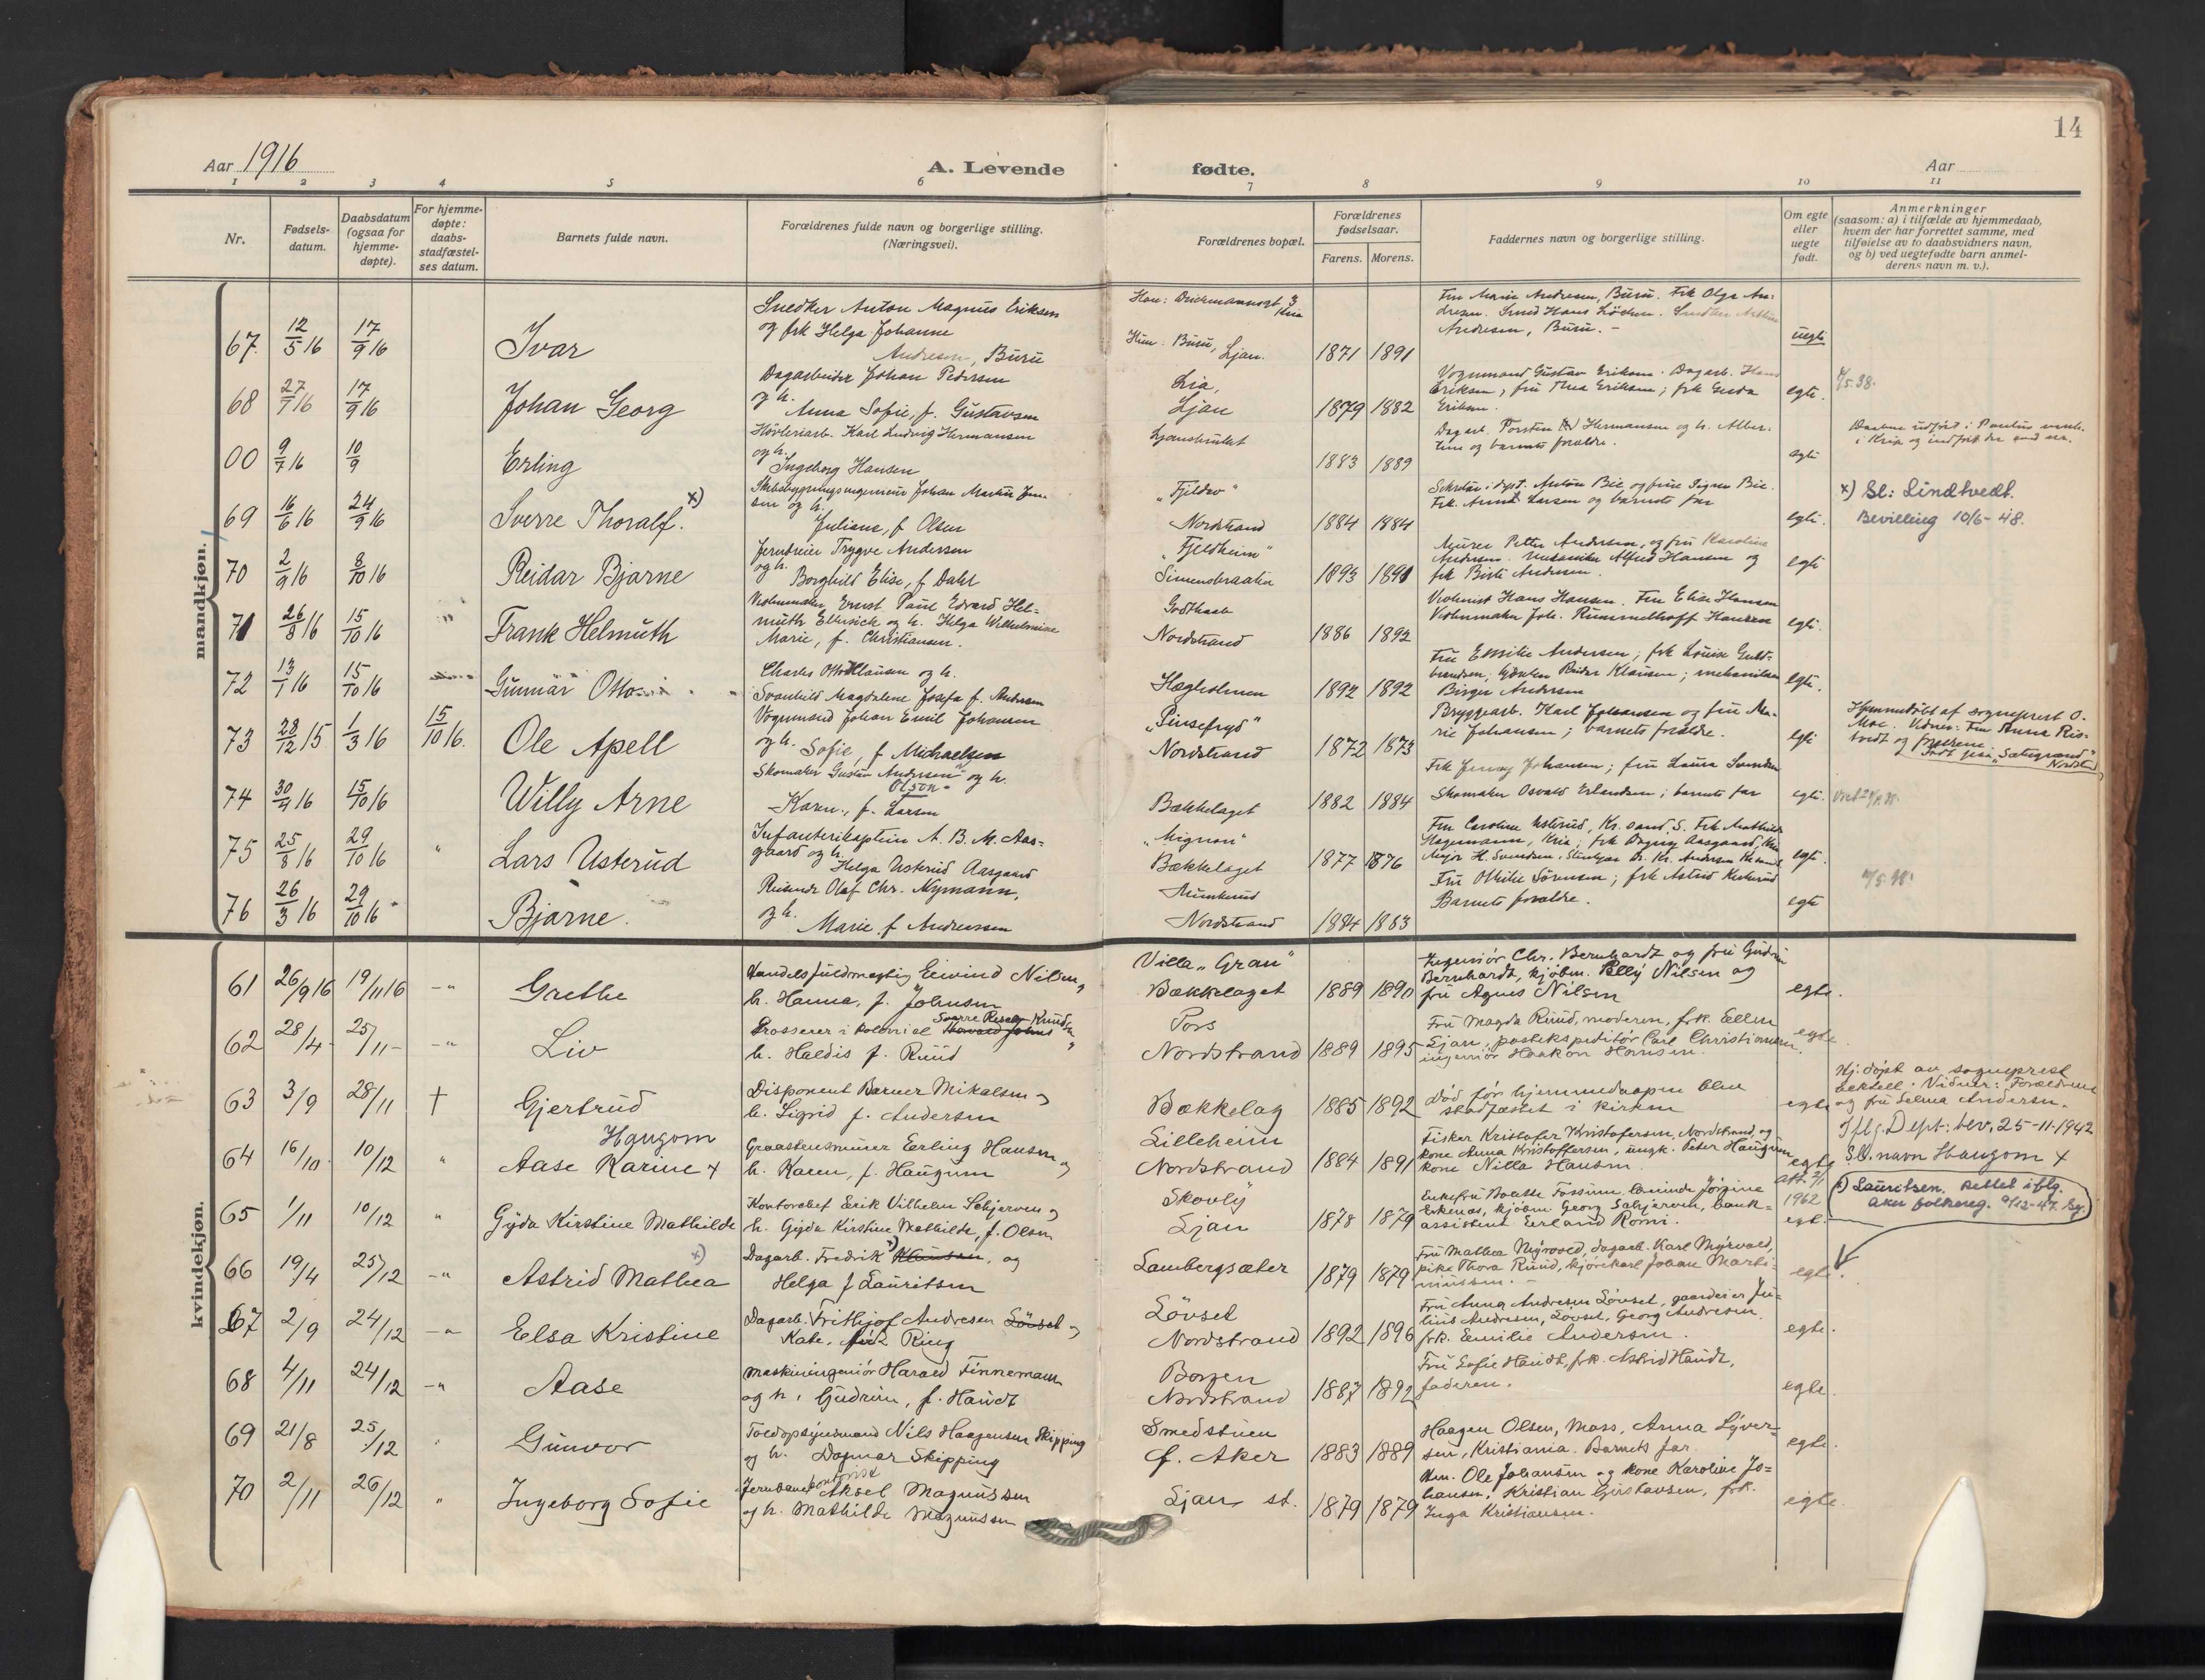 14
Aar 1916
A. Levende fødte.
Aar
1 2 3 4 5 6 7 8 9 10 11
Nr.
Fødsels-
datum.
Daabsdatum
(ogsaa for
hjemme-
døpte).
For hjemme-
døpte:
daabs-
stadfæstel-
ses datum.
Barnets fulde navn.
Forældrenes fulde navn og borgerlige stilling.
(Næringsvei).
Forældrenes bopæl.
Forældrenes
fødselsaar.
Farens. Morens.
Faddernes navn og borgerlige stilling.
Om egte
eller
uegte
født.
Anmerkninger
(saasom: a) i tilfælde av hjemmedaab,
hvem der har forrettet samme, med
tilføielse av to daabsvidners navn,
og b) ved uegtefødte barn anmel-
derens navn m. v.).
mandkjøn.
67. 12/5 16 17/9 16 Ivar
Snedker Anton Magnus Eriksen
og frk Helga Johanne
Andresen, Buru
Hun: Buru, Ljan.
1871 1891
Fru Marie Andresen, Buru. Frk Olga An-
Andresen, Buru. -
uegte
68 27/7 16 17/9 16 Johan Georg
Dagarbeider Johan Pedersen
og h.
Anna Sofie, f. Gustavsen
Lia,
Ljan
1879 1882
Vognmand Gustav Eriksen. Dagarb. Hans
Eriksen; fru Thea Eriksen; frk Gerda
Eriksen.
egte.
00 9/7 16 10/9 Erling
Høvleriarb. Karl Ludvig Hermansen
og h.
Ingeborg Hansen
1883 1889
Dagarb. Torsten Hermansen og h. Alber-
tine og barnets forældre.
egte
69 16/6 16 24/9 16 Sverre Thoralf. x)
Skibsbygningsingeniør Johan Martin Jen-
sen og h.
Juliane, f. Olsen
"Fjeldro"
Nordstrand
1884 1884
Sekretær i dept. Anton Bie og frue Signe Bie.
Larsen og barnets far
egte.
x) Sl: Lindtvedt.
Bevilling 10/6-48.
70 2/9 16 8/10 16 Reidar Bjarne
Trygve Andersen
og h.
Borghild Elise, f. Dahl
"Fjeldheim"
Simensbraaten
1893 1891
Murer Petter Andersen, og fru Karoline
Andersen. Mekaniker Alfred Hansen og
frk Birte Andersen.
egte
71 26/8 16 15/10 16 " Frank Helmuth
Violinmaker Ernst Paul Edvard Hel-
muth Ellersick og h. Helga Wilhelmine
Marie, f. Christiansen.
Godthaab
Nordstrand
1886 1892
Violinist Hans Hansen. Fru Elise Hansen
Violinmaker Joh. Rummelhoff Hansen
egte.
72 13/1 16 15/10 16 Gunnar Otto
Charles Otto Klausen og h.
Svanhild Magdalene Josefa f. Andersen
Hægholmen
1892 1892
Fru Emilie Andersen; frk Louise Guld-
brandsen; Reidar Klausen; mekaniker
Birger Andersen
egte.
73 28/12 15 1/3 16 15/10 16. Ole Apell
Vognmand Johan Emil Johansen
og h. Sofie, f. Michaelsen
"Pinsefryd"
Nordstrand
1872 1873
Bryggearb. Karl Johansen og fru Ma-
rie Johansen; barnets forældre.
egte
Hjemmedøbt af sogneprest O.
Moe. Vidner: Fru Anna Ris-
tvedt og forældrene.
74 30/4 16 15/10 16 Willy Arne
Skomaker Gustav Andersen og h.
Olson
Karen, f. Larsen
Bækkelaget
1882 1884
Frk Jenny Johansen; fru Laura Svendsen
Skomaker Osvald Erlandsen; barnets far
egte.
75 25/8 16 29/10 16 " Lars Usterud
Infanterikaptein A. B. M. Aas-
gaard og h.
Helga Usterud Aasgaard
"Mignon"
Bækkelaget
1877 1876
Fru Caroline Usterud, Kr.sand S. Frk Mathilde
Hagemann, Kria; frk Dagny Aasgaard, Kria
egte.
76 26/3 16 29/10 16 Bjarne.
Reisende Olaf Chr. Nymann,
og h.
Marie f. Andreassen
Munkerud
Nordstrand
1884 1883
Fru Othilie Sørensen; frk Astrid
Barnets forældre.
egte
kvindekjøn.
61 26/9 16 19/11 16 -"- Grethe
Handelsfuldmægtig Eivind Nilsen,
h. Hanna, f. Johnsen
Villa "Gran"
Bækkelaget
1889 1890
Ingeniør Chr. Bernhardt og fru Gudrun
Bernhardt, kjøbm. Nilsen og
fru Agnes Nilsen
egte.
62 28/4- 25/11- -"- Liv
Grosserer i kolonial Sverre Knudsen
h. Haldis f. Ruud
Pors
Nordstrand
1889 1895
Fru Magda Ruud, moderen, frk. Ellen
Ljan, postekspeditør Carl Christiansen
ingeniør Haakon Hansen.
egte
63 3/9 28/11 † Gjertrud
Disponent Berner Mikalsen og
h. Sigrid f. Andersen
Bækkelag
1885 1892
Død før hjemmedaapen blev
stadfæstet i kirken
egte
Hj. døpt av sogneprest
Vidner: Forældrene
og fru Selma Andersen.
64 16/10. 10/12 " Aase Karine x Haugom
Graastensmurer Erling Hansen og
h. Karen, f. Haugum
Lilleheim
Nordstrand
1884 1891
Fisker Kristofer Kristofersen, Nordstrand og
kone Anna Kristoffersen, ungk. Peter Haugum
kone Nilla Hansen.
egte
Iflg. Dept. bev. 25-11-1942
Sl. navn Haugom x
65 1/11 10/12 " Gyda Kirstine Mathilde
Kontorchef Erik Vilhelm Schjerven og
h. Gyda Kirstine Mathilde, f. Olsen
Skovly
Ljan
1878 1879
Enkefru Bolette Fossum, Jørgine
Eskenes, kjøbm. Georg Schjerven, bank-
assistent Erland Romi.
att. 2/1
1962
egte.
x) Lauritsen. Rettet iflg.
Aker folkereg. 9/12-47.
66 19/4 25/12 -"- Astrid Mathea x)
Dagarb. Fredrik x) Klausen, og
Helga f Lauritsen
Lambergsæter
1879 1879
Fru Mathea Myrvold, dagarb. Karl Myrvold,
pike Thora Ruud, kjørekarl Johan Marti-
niussen. -
egte.
67 2/9 24/12 -"- Elsa Kristine
Dagarb. Frithjof Andresen Løvset og
Kate, født Ring
Løvset
Nordstrand
1892 1896
Fru Anna Andresen Løvset, gaardeier Ju-
lius Andresen, Løvset, Georg Andresen
frk. Emilie Andersen.
egte.
68 4/11 24/12 -"- Aase
Maskiningeniør Harald Finnemann
og h. Gudrun, f. Haudt
Borgen
Nordstrand
1887 1892
Fru Sofie Haudt, frk. Astrid Haudt,
faderen.
egte.
69 21/8 25/12 " Gunvor
Toldopsynsmand Nils Haagensen Skipping
og h. Dagmar Skipping
Smedstuen
Ø. Aker
1883 1889
Haagen Olsen, Moss, Anna Syver-
sen, Kristiania. Barnets far.
egte.
70 2/11 26/12 " Ingeborg Sofie
Jernbanekontorist Aksel Magnussen
og h. Mathilde Magnussen
Ljan st.
1879 1879
Hrr. Ole Johansen og kone Karoline Jo-
hansen, Kristian Gustavsen, frk.
Inga Kristiansen.
egte.